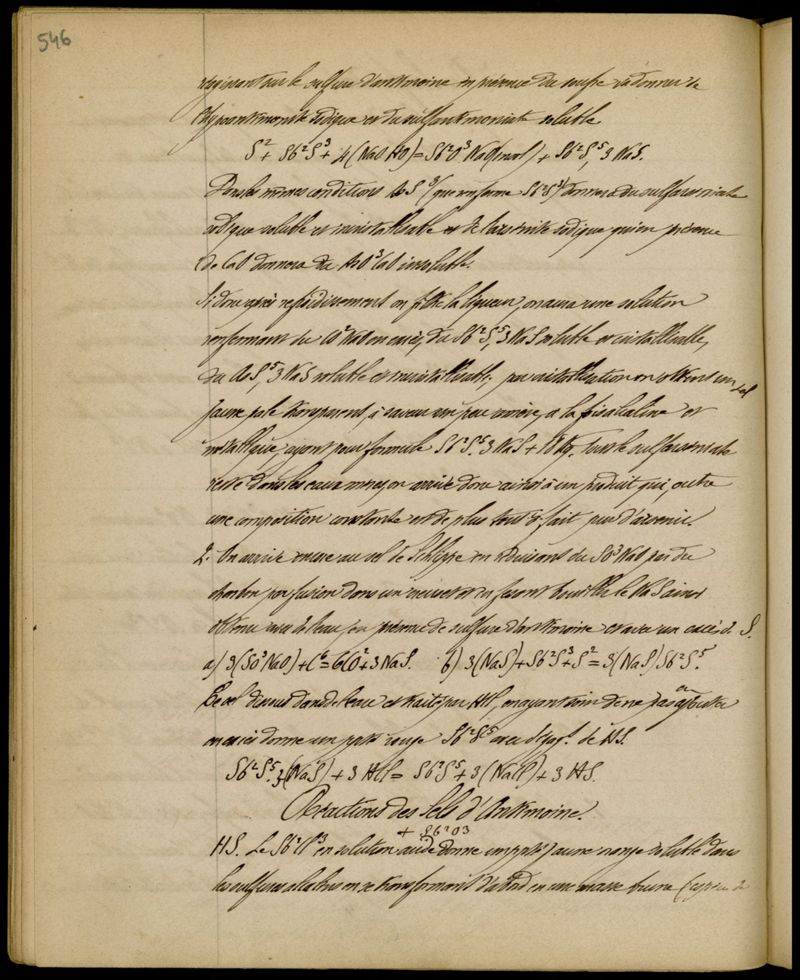 546
réagissant sur le sulfure d'antimoine en présence du soufre va donner de
l'hypoantimonite sodique et du sulfantimoniate soluble
S² + Sb²S³ + 4(NaO HO) = Sb²O³ NaO + Sb²S⁵, 3 NaS.
Dans les mêmes conditions AsS³ (que renferme Sb²S³) donnera du sulfarséniate
sodique soluble et incristallisable et de l'arsénite sodique qui en présence
de CaO donnera du AsO³CaO insoluble.
Si donc après refroidissement on filtre la liqueur, on aura une solution
renfermant du CO²NaO en excès, du Sb²S⁵, 3 NaS soluble et cristallisable,
du AsS⁵, 3 NaS soluble et incristallisable; par cristallisation on obtient un sel
jaune pâle transparent, à saveur un peu amère, à la fois alcaline et
métallique, ayant pour formule Sb²S⁵. 3 NaS + 18 Aq. tout le sulfarséniate
reste dans les eaux mères, on arrive donc ainsi à un produit qui, outre
une composition constante est de plus tout à fait pur d'arsenic.
2. On arrive encore au sel de Schlippe en réduisant du SO³NaO par du
charbon par fusion dans un creuset et en faisant bouillir le NaS ainsi
obtenu avec de l'eau, en présence de sulfure d'antimoine et avec un excès de S.
a) 3(SO³NaO) + C⁶ = 6CO² + 3 NaS. b) 3(NaS) + Sb²S³ + S² = 3(NaS) Sb²S⁵.
Ce sel dissous dans de l'eau et traité par HCl, en ayant soin de ne pas en ajouter
en excès donne un ppté rouge Sb²S⁵ avec dégagt. de HS.
Sb²S⁵. 3(NaS) + 3 HCl = Sb²S⁵ + 3(NaCl) + 3 HS.
Réactions des Sels d'Antimoine.
+ Sb²O3
HS. Le Sb²Cl³ en solution acide donne un ppté jaune rouge soluble dans
les sulfures alcalins en se transformant d'abord en une masse brune (espèce de